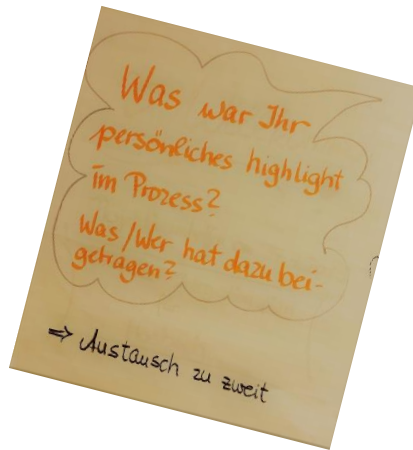 Was war Ihr
persönliches highlight
im Prozess?
Was/Wer hat dazu bei-
getragen?
⇒ Austausch zu zweit